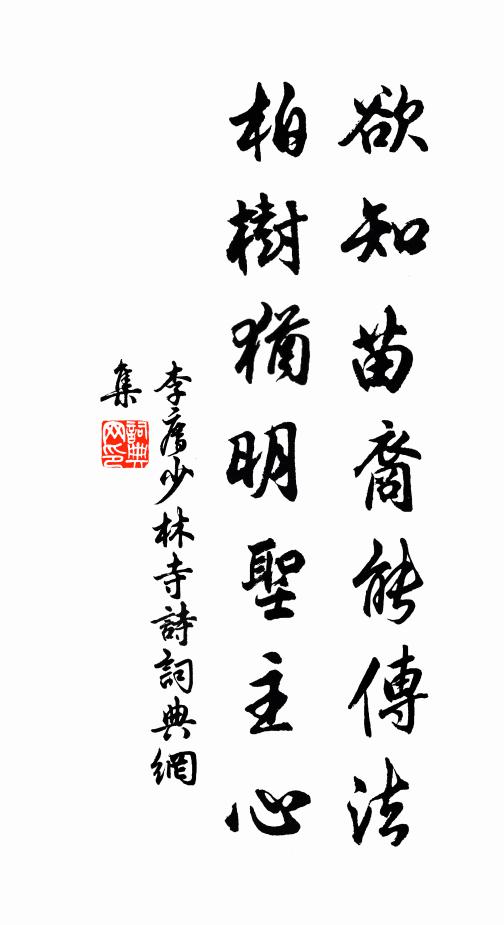 欲知苗裔能傳法
柏樹猶明聖主心
李廌少林寺詩詞典網
集
詞典
网印